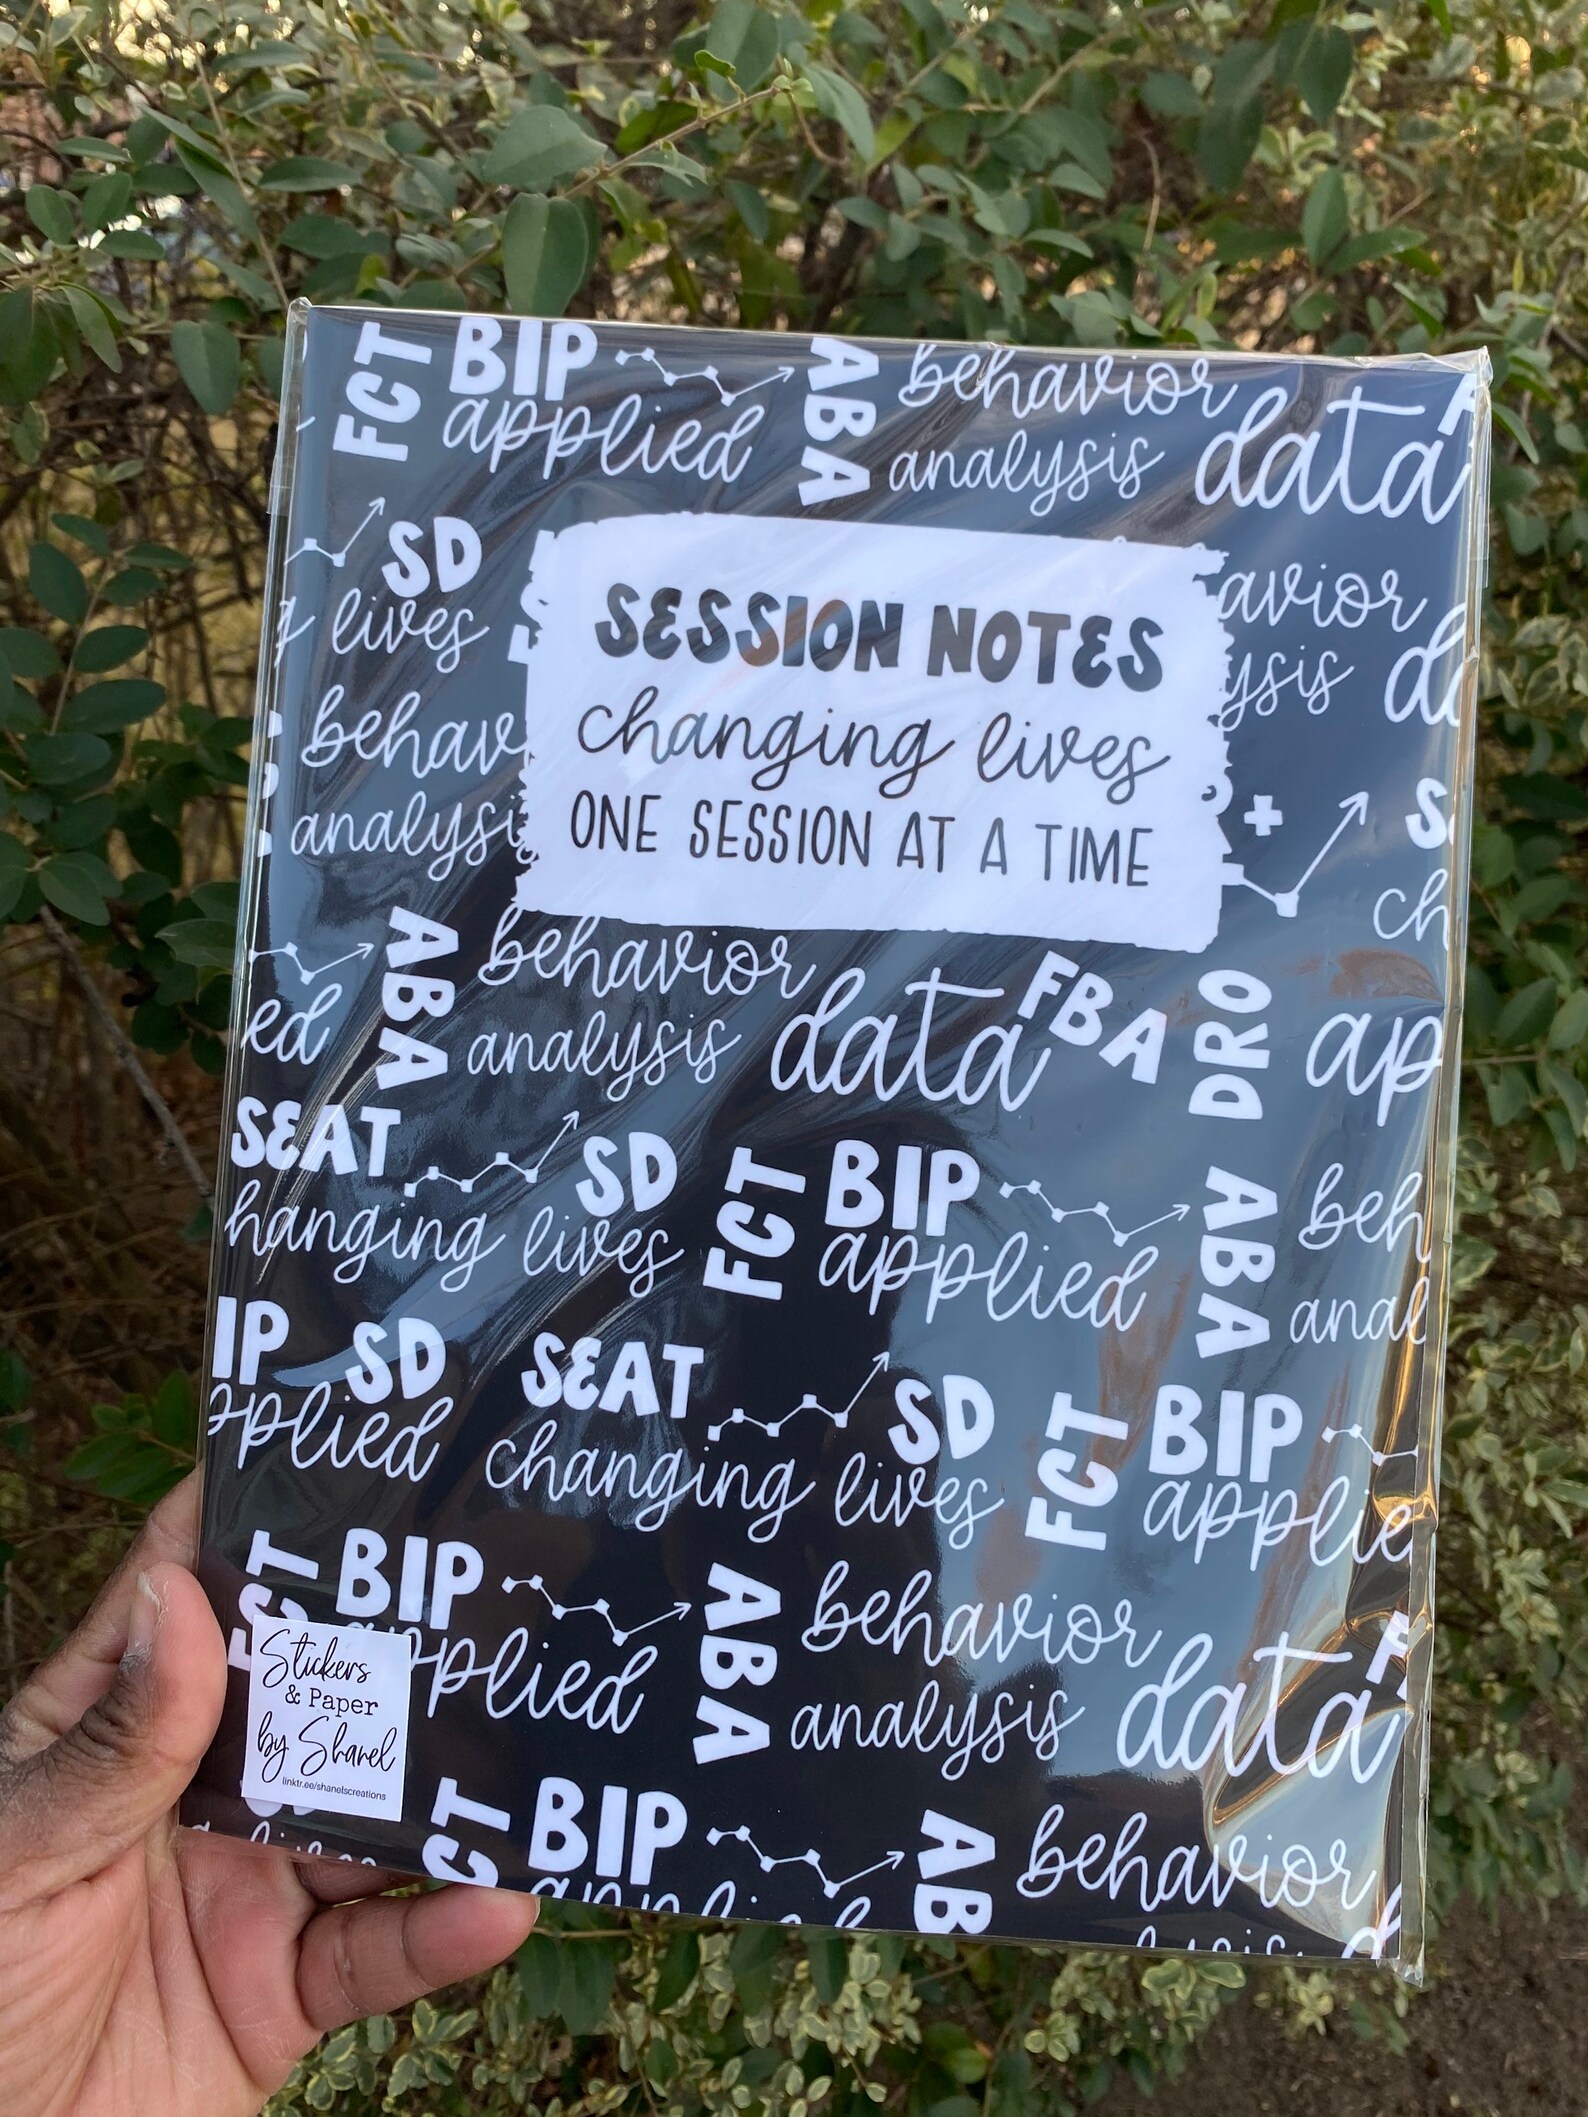 FCT BIP ABA behavior
applied analysis data
SD avior
lives ysis
SESSION NOTES
changing lives
ONE SESSION AT A TIME
behav
analysi
ch
ABA behavior data FBA DRO
ed analysis ap
SEAT SD FCT BIP ABA beh
hanging lives applied anal
IP SD SEAT SD FCT BIP
pplied changing lives applie
BIP ABA behavior
pplied analysis data
Stickers
& Paper
by Shanel
linktr.ee/shanelscreations
CT BIP AB behavior
applied